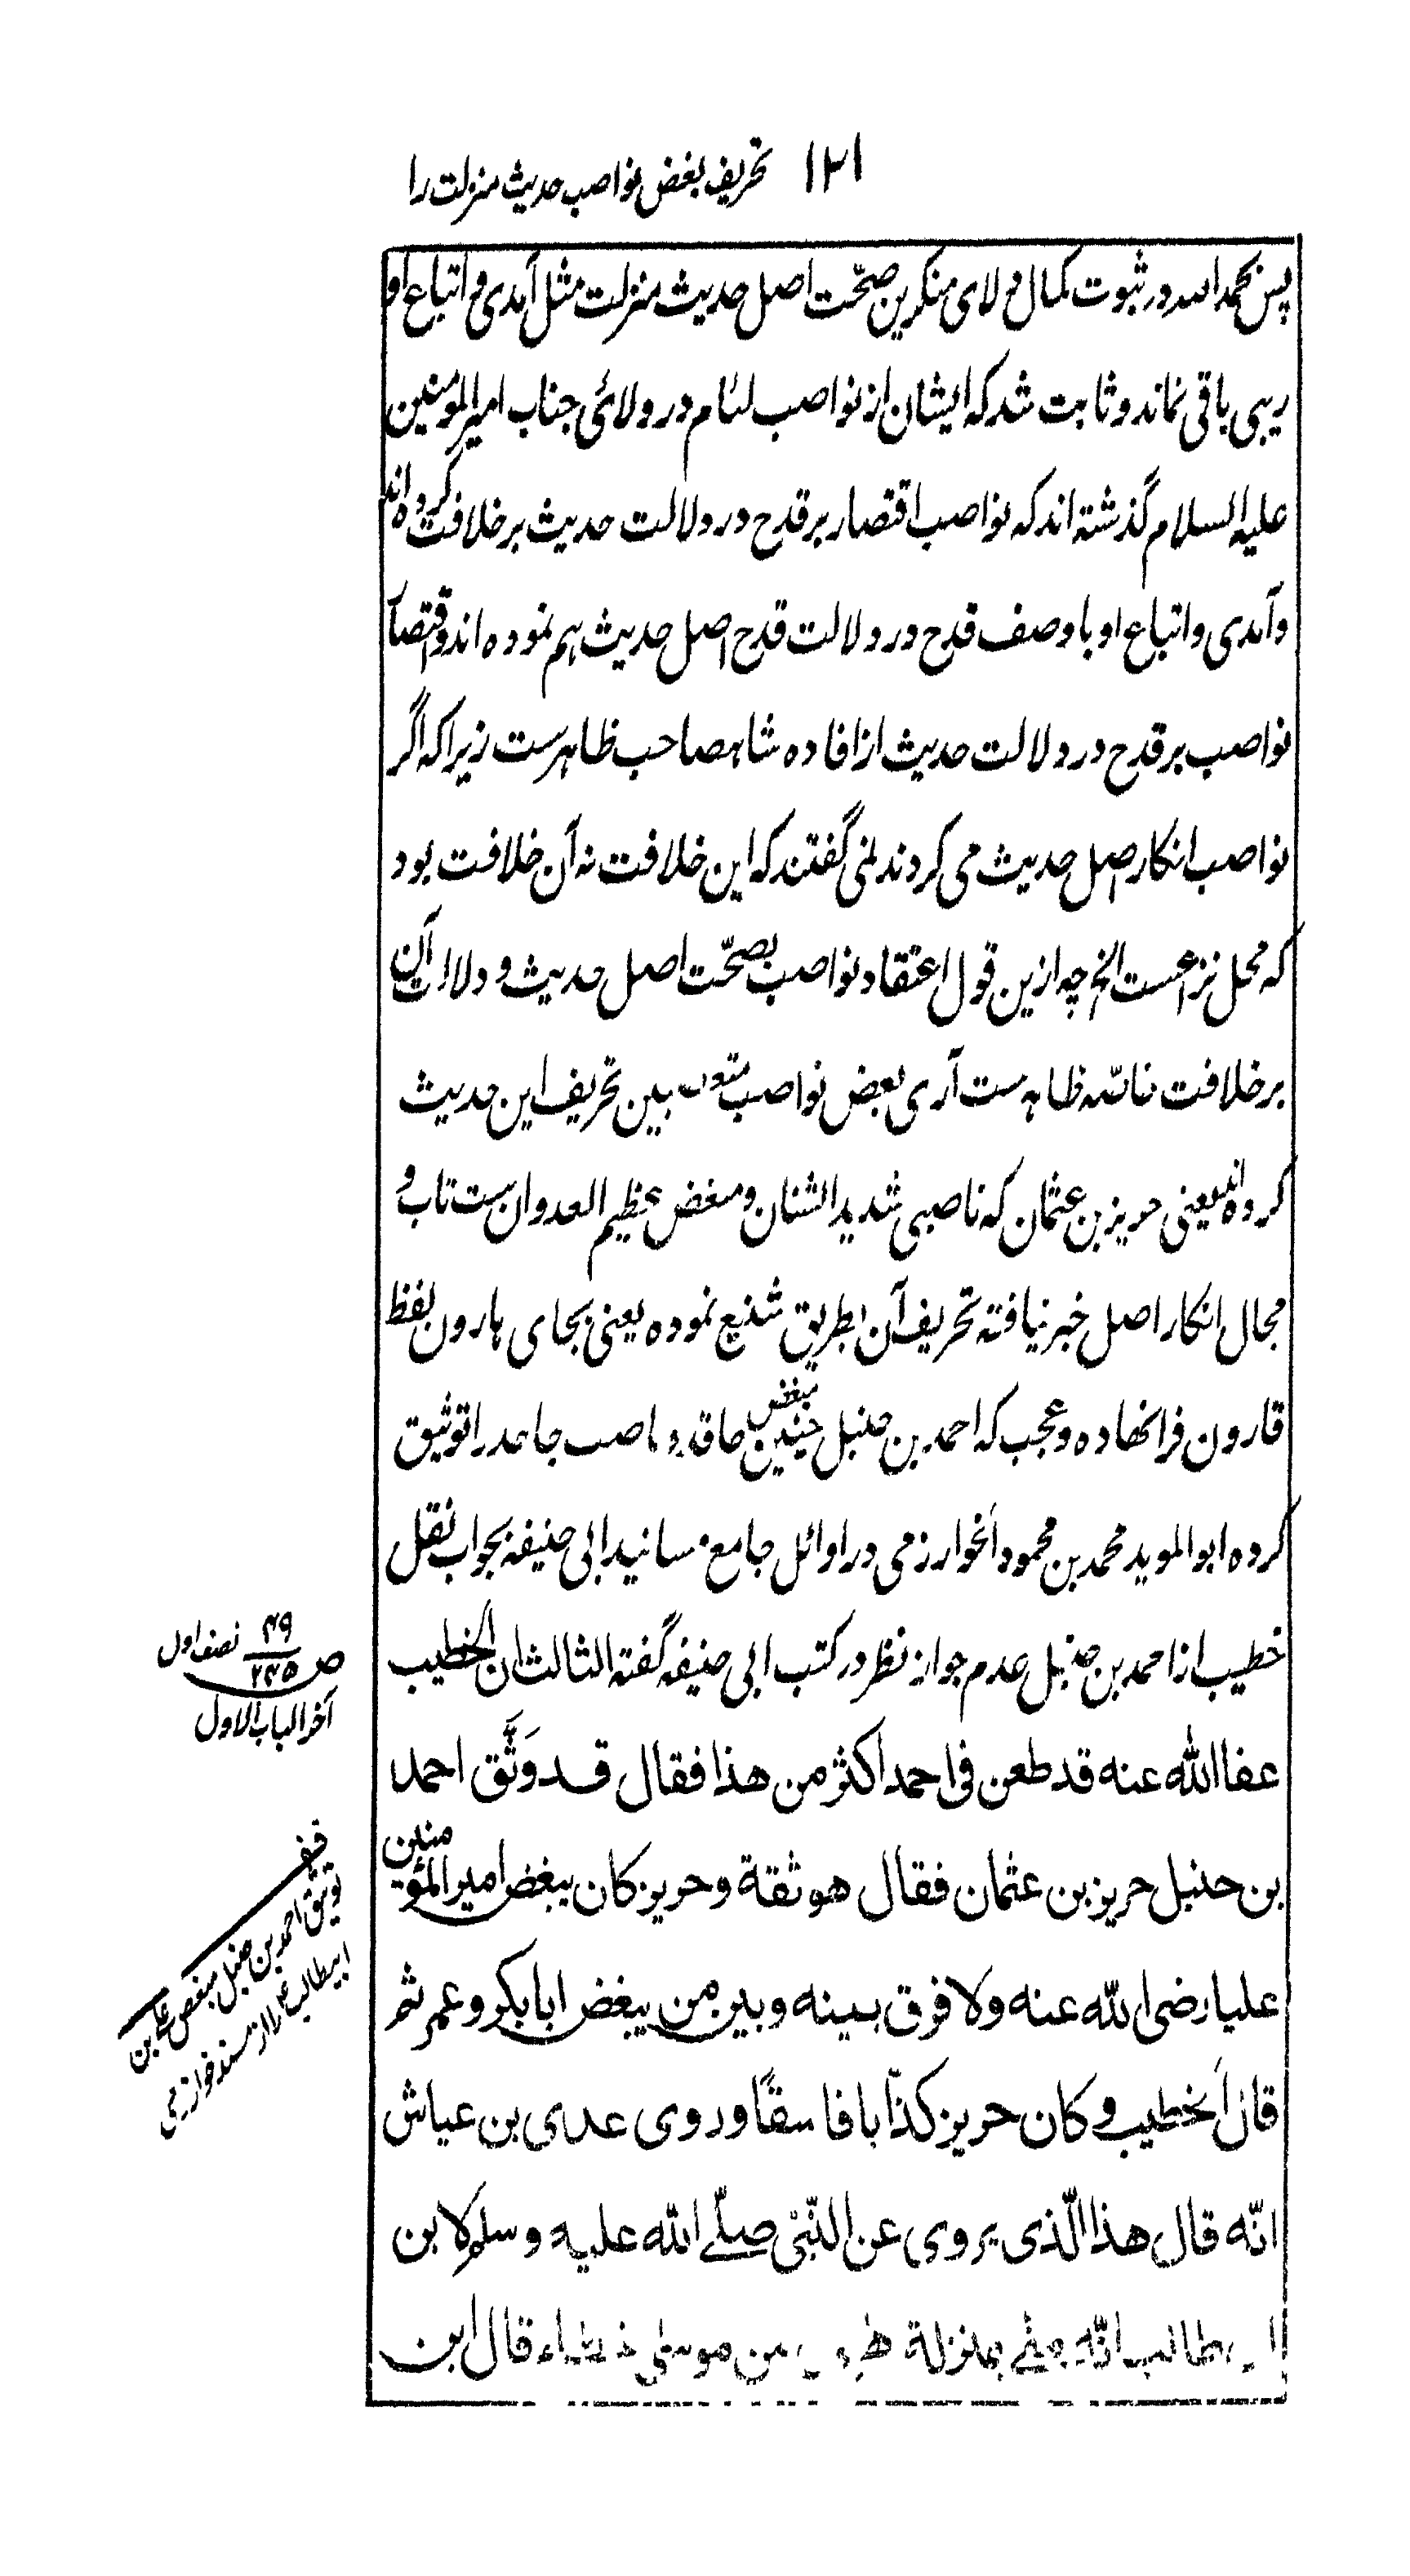 ۱۲۱ تحریف بغض نواصب حدیث منزلت را
پس بحمد اللہ در ثبوت کمال ولای منکرین صحّت اصل حدیث منزلت مثل آمدی و اتباع او
ریبی باقی نماند و ثابت شد که ایشان از نواصب لئام در ولائی جناب امیر المومنین
علیه السلام گذشته اند که نواصب اقتصار بر قدح در دلالت حدیث بر خلافت کرده اند
و آمدی و اتباع او با وصف قدح در دلالت قدح اصل حدیث هم نموده اند و اقتصار
نواصب بر قدح در دلالت حدیث از افاده شاهصاحب ظاهرست زیرا که اگر
نواصب انکار اصل حدیث می کردند نمی گفتند که این خلافت نه آن خلافت بود
که محل نزاعست الخ چه ازین قول اعتقاد نواصب بصحّت اصل حدیث و دلالت آن
بر خلافت ظاهرست آری بعض نواصب تحریف این حدیث
کرده اند یعنی حریز بن عثمان که ناصبی شدید الشنان و مبغض عظیم العدوان ست تاب و
مجال انکار اصل خبر نیافته تحریف آن بطریق شنیع نموده یعنی بجای هارون لفظ
قارون فرا نهاده و عجب که احمد بن حنبل چنین مبغض حاقد و ناصب جاحد را توثیق
کرده ابو الموید محمد بن محمود الخوارزمی در اوائل جامع مسانید ابی حنیفه بجواب نقل
خطیب از احمد بن حنبل عدم جواز نظر در کتب ابی حنیفه گفته الثالث ان الخطیب
عفا الله عنه قد طعن فی احمد اکثر من هذا فقال قد وَثَّق احمد
بن حنبل حریز بن عثمان فقال هو ثقة و حریز کان یبغض امیر المؤمنین
علیا رضی الله عنه ولا فرق بینه و بین من یبغض ابا بکر و عمر ثم
قال الخطیب و کان حریز کذّابا فاسقًا و روی عدی بن عیاش
انّه قال هذا الّذی یروی عن النّبیّ صلّے الله علیه وسلم لابن
ابی طالب انّه منّی بمنزلة هرون من موسی خطاء قال ابن
ص ۴۹ / ۲۴۵ نصف اول
آخر الباب الاول
قف
توثیق احمد بن حنبل مبغض علی بن
ابیطالب را از مسند خوارزمی